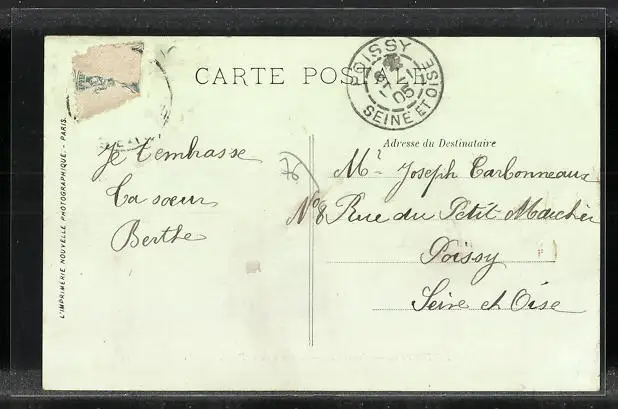 CARTE POSTALE
POISSY
05
SEINE ET OISE
Adresse du Destinataire
Je t'embrasse
Ta soeur
Berthe
Mr Joseph Carbonneaux
N° 8 Rue du Petit Marché
Poissy
Seine et Oise
L'IMPRIMERIE NOUVELLE PHOTOGRAPHIQUE. - PARIS.